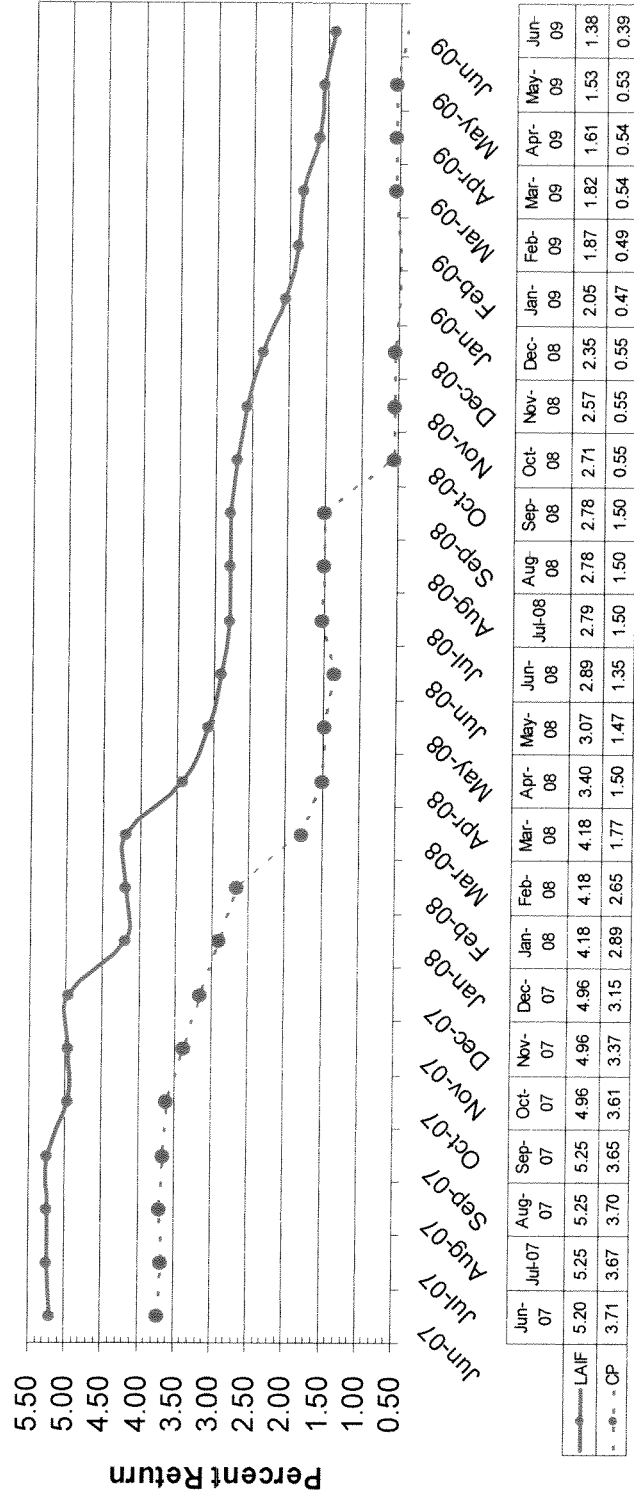 Percent Return
5.50
5.00
4.50
4.00
3.50
3.00
2.50
2.00
1.50
1.00
0.50
Jun-07 Jul-07 Aug-07 Sep-07 Oct-07 Nov-07 Dec-07 Jan-08 Feb-08 Mar-08 Apr-08 May-08 Jun-08 Jul-08 Aug-08 Sep-08 Oct-08 Nov-08 Dec-08 Jan-09 Feb-09 Mar-09 Apr-09 May-09 Jun-09
Jun- Jul-07 Aug- Sep- Oct- Nov- Dec- Jan- Feb- Mar- Apr- May- Jun- Jul-08 Aug- Sep- Oct- Nov- Dec- Jan- Feb- Mar- Apr- May- Jun-
07 07 07 07 07 07 08 08 08 08 08 08 08 08 08 08 08 09 09 09 09 09 09
LAIF 5.20 5.25 5.25 5.25 4.96 4.96 4.96 4.18 4.18 4.18 3.40 3.07 2.89 2.79 2.78 2.78 2.71 2.57 2.35 2.05 1.87 1.82 1.61 1.53 1.38
CP 3.71 3.67 3.70 3.65 3.61 3.37 3.15 2.89 2.65 1.77 1.50 1.47 1.35 1.50 1.50 1.50 0.55 0.55 0.55 0.47 0.49 0.54 0.54 0.53 0.39